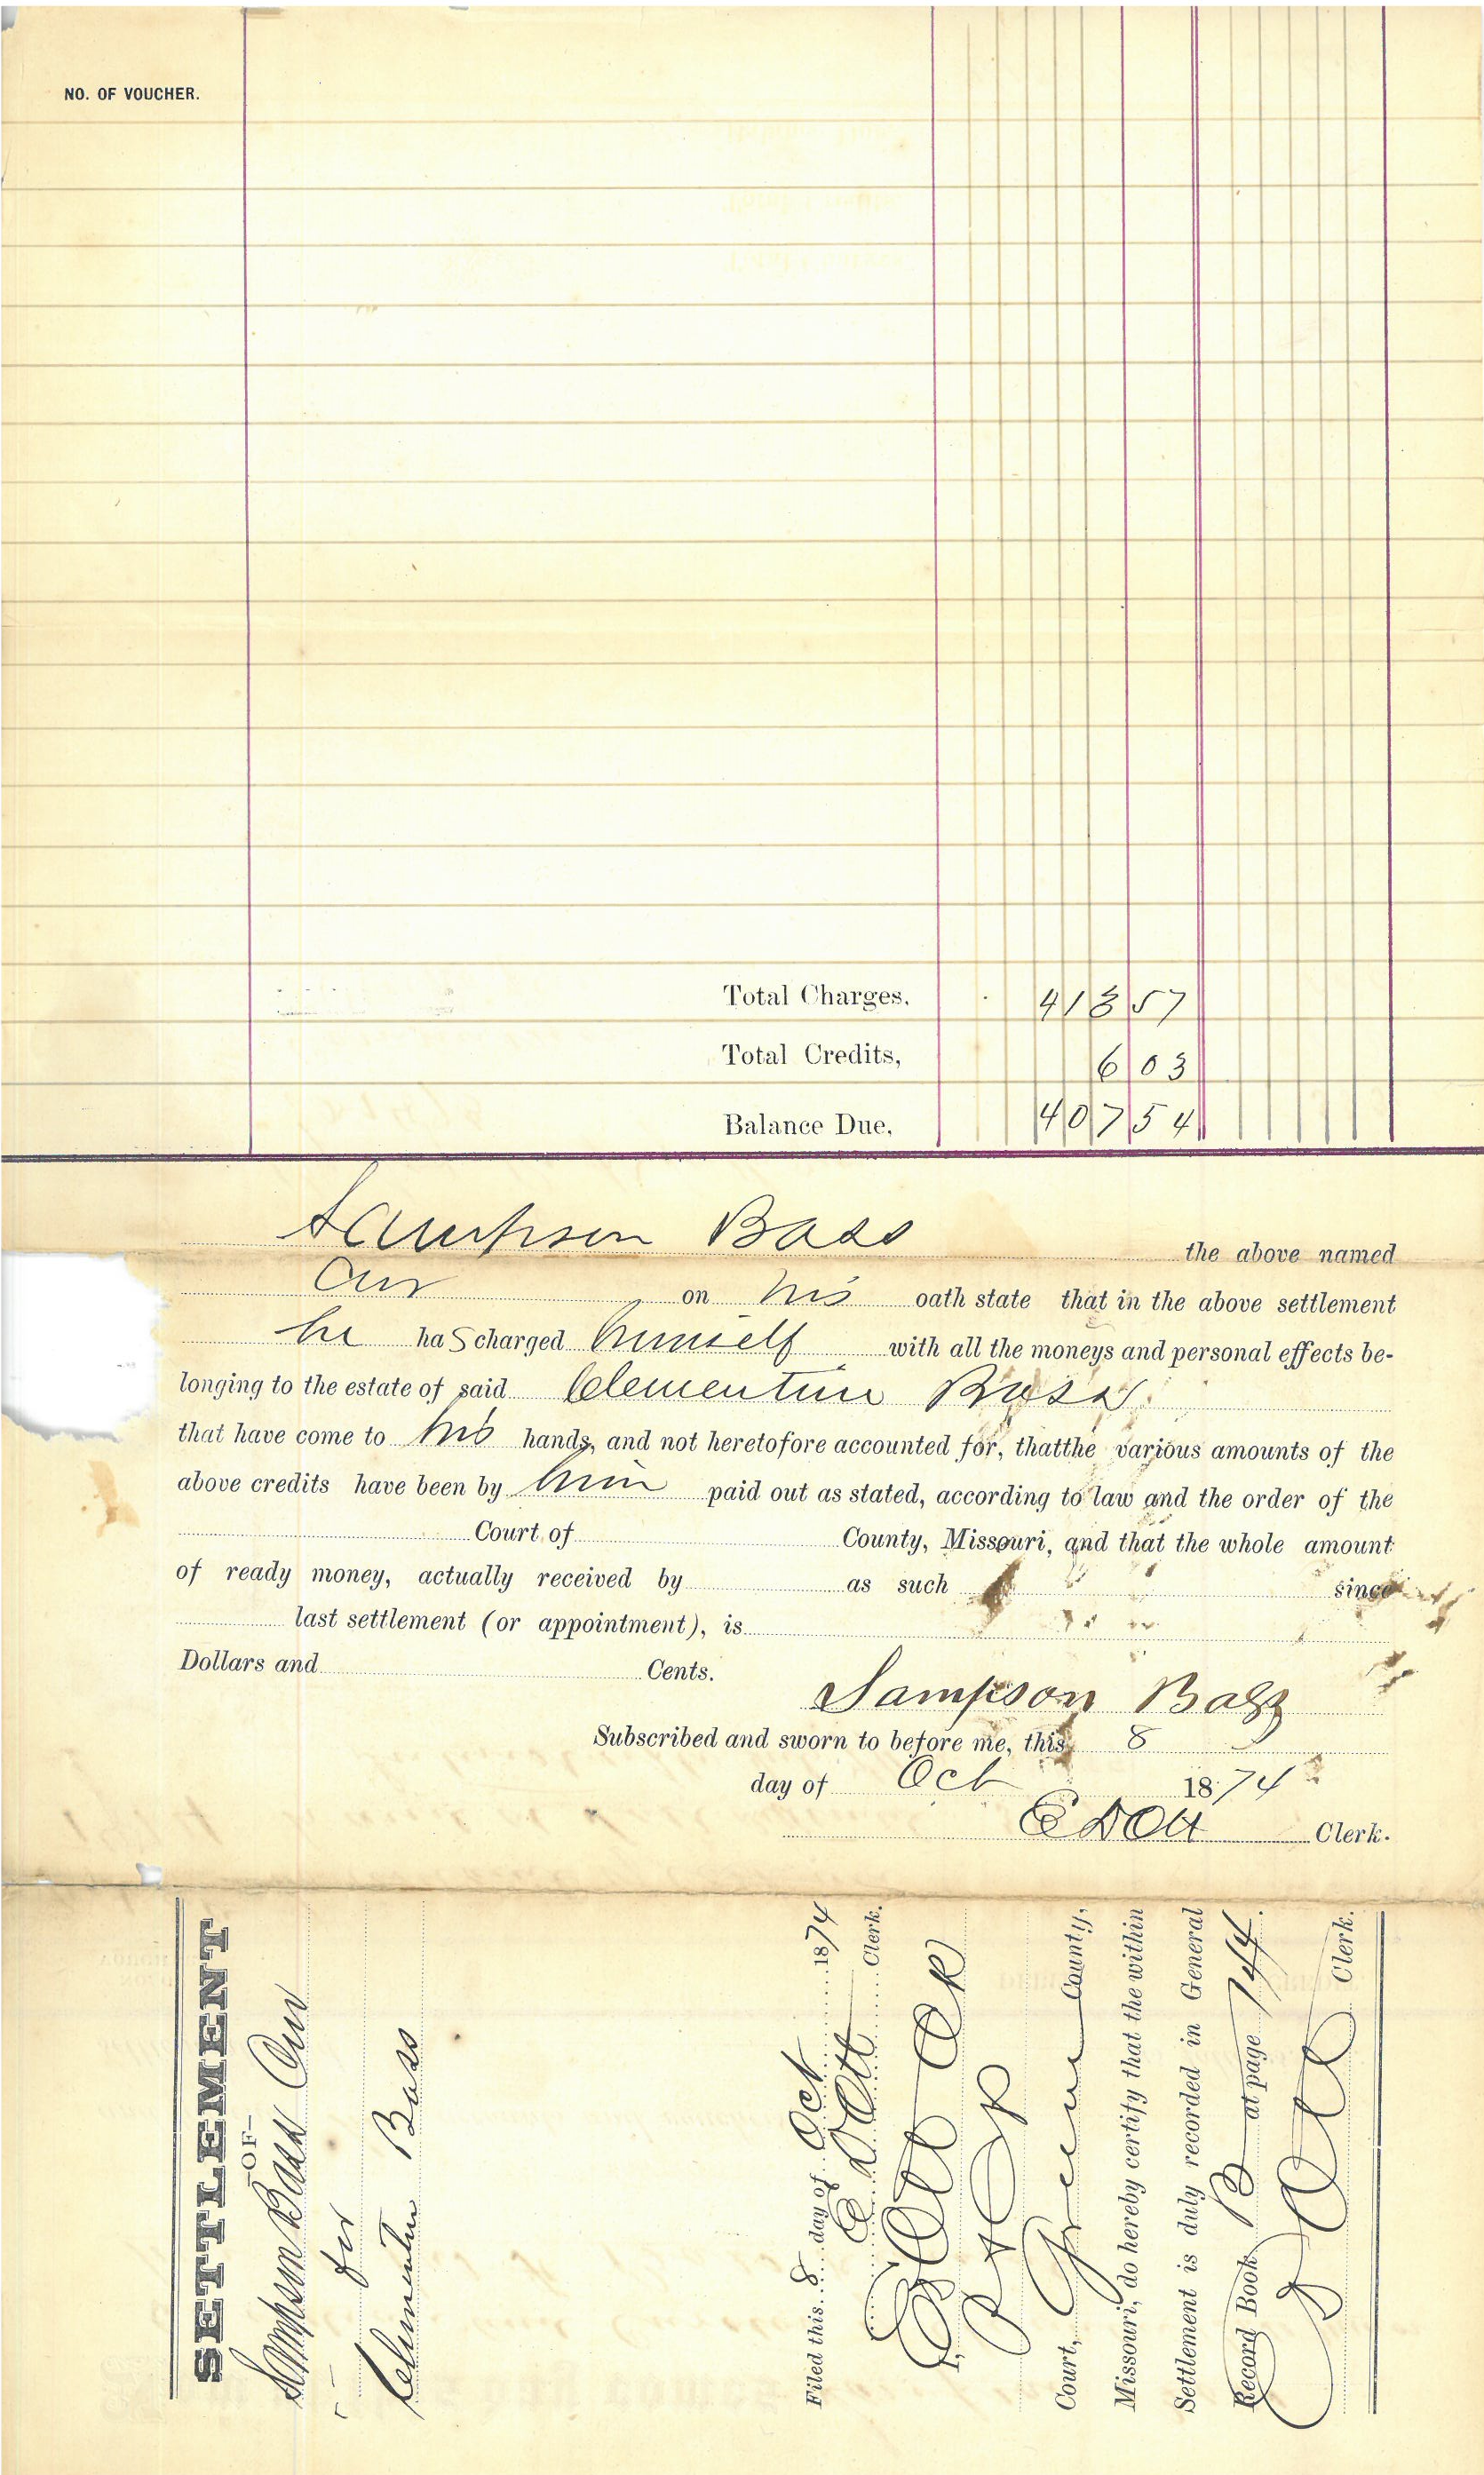 NO. OF VOUCHER.
Total Charges, 413 57
Total Credits, 6 03
Balance Due, 407 54
Sampson Bass the above named
Cur on his oath state that in the above settlement
he has charged himself with all the moneys and personal effects be-
longing to the estate of said Clementine Bass
that have come to his hands, and not heretofore accounted for, thatthe various amounts of the
above credits have been by him paid out as stated, according to law and the order of the
Court of County, Missouri, and that the whole amount
of ready money, actually received by as such since
last settlement (or appointment), is
Dollars and Cents.
Sampson Bass
Subscribed and sworn to before me, this 8
day of Oct 1874
E D Ott Clerk.
SETTLEMENT
—OF—
Sampson Bass Cur
for
Clementine Bass
Filed this 8 day of Oct 1874
E D Ott Clerk.
I, E D Ott Clk
Court, Greene County,
Missouri, do hereby certify that the within
Settlement is duly recorded in General
Record Book B at page 144.
Ott Clerk.